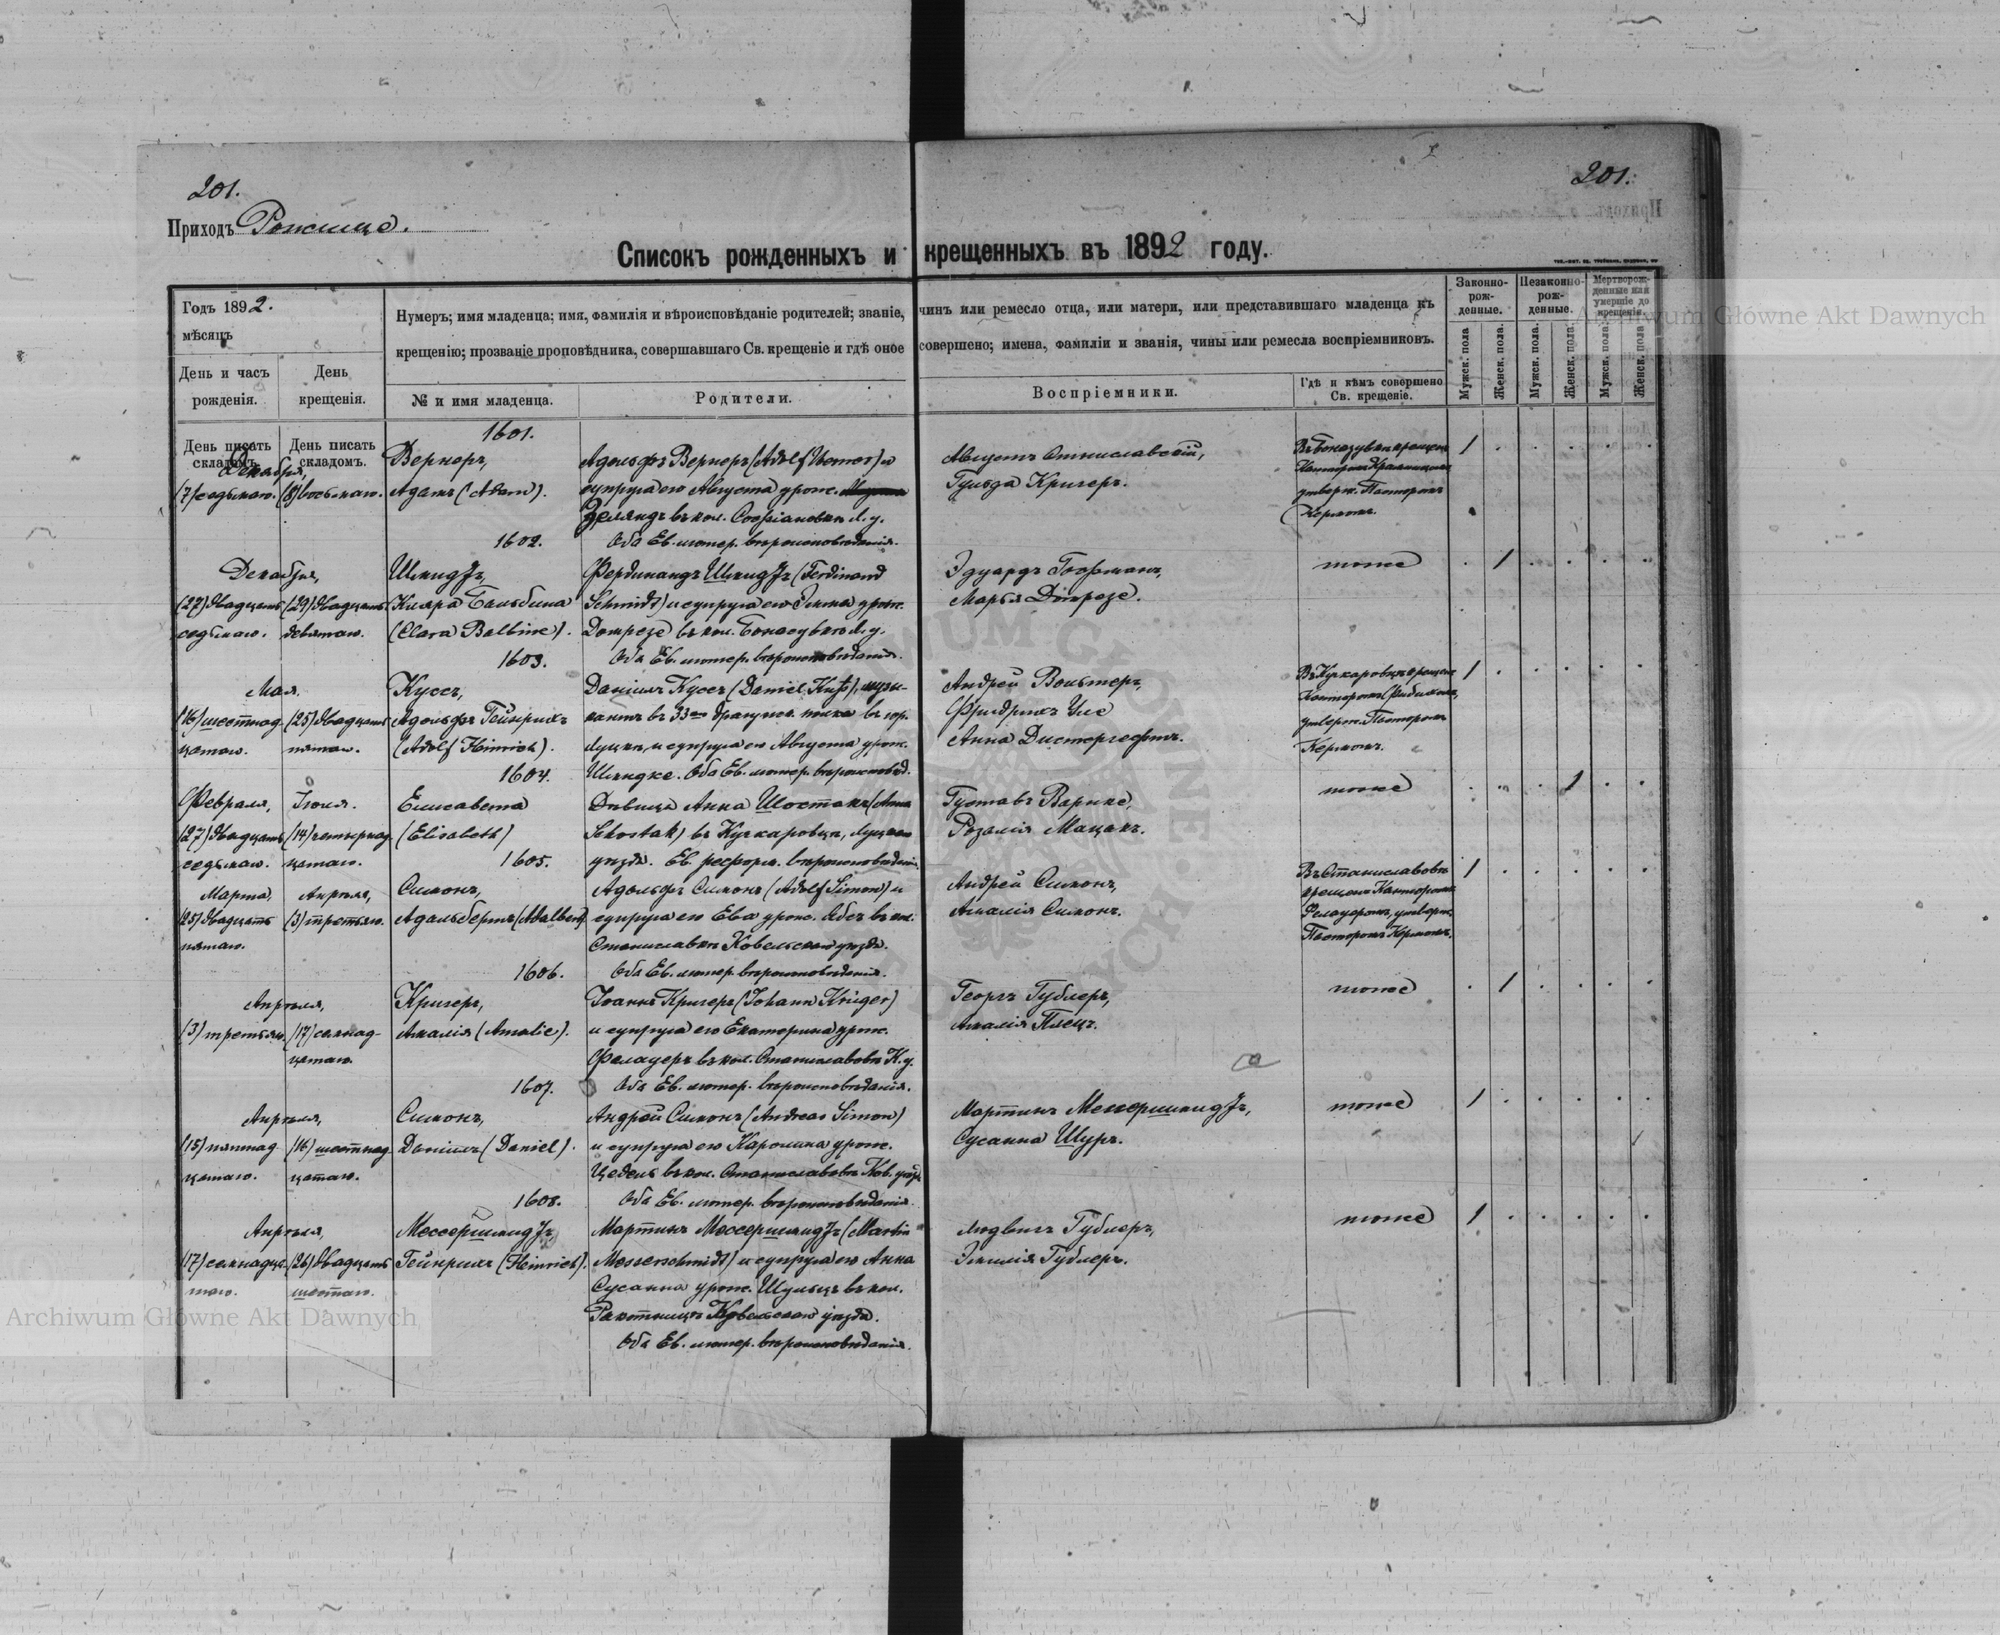 201.
201.
Приходъ Рожище.
Списокъ рожденныхъ и крещенныхъ въ 1892 году.
Годъ 1892.
мѣсяцъ
День и часъ рожденія.
День крещенія.
Нумеръ; имя младенца; имя, фамилія и вѣроисповѣданіе родителей; званіе, чинъ или ремесло отца, или матери, или представившаго младенца къ
крещенію; прозваніе проповѣдника, совершавшаго Св. крещеніе и гдѣ оное совершено; имена, фамиліи и званія, чины или ремесла воспріемниковъ.
№ и имя младенца.
Родители.
Воспріемники.
Гдѣ и кѣмъ совершено Св. крещеніе.
Законно-рож-денные.
Незаконно-рож-денные.
Мертворож-денные или умершіе до крещенія.
Мужск. пола
Женск. пола.
Мужск. пола.
Женск. пола.
Мужск. пола.
Женск. пола
День писать складомъ.
День писать складомъ.
1601.
Декабря,
(7) седьмаго.
(8) восьмаго.
Вернеръ,
Адамъ (Adam).
Адольфъ Вернеръ (Adolf Werner) и
супруга его Августа урож.
въ кол. Софіановкѣ Л. у.
Оба Ев. лютер. вѣроисповѣданія.
Августъ
Гульда Кригеръ.
утверж. Пасторомъ
Керномъ.
1
1602.
Декабря,
(27) двадцать
седьмаго.
(29) двадцать
девятаго.
Шмидтъ,
Клара Бальбина
(Clara Balbine).
Фердинандъ Шмидтъ (Ferdinand
Schmidt) и супруга его Эмма урож.
Домрезе въ кол. Л. у.
Оба Ев. лютер. вѣроисповѣданія.
Эдуардъ Гофманъ,
Марья Домрезе.
тоже
1
1603.
Мая.
(16) шестнад-
цатаго.
(25) двадцать
пятаго.
Куссъ,
Адольфъ Гейнрихъ
(Adolf Heinrich).
Даніилъ Куссъ (Daniel Kuß), музы-
кантъ въ 33мъ драгунск. полка въ гор.
Луцкѣ, и супруга его Августа урож.
Шиндке. Оба Ев. лютер. вѣроисповѣд.
Андрей Вольтеръ,
Фридрихъ Уле
Анна Дистергефтъ.
утверж. Пасторомъ
Керномъ.
1
1604.
Февраля,
(27) двадцать
седьмаго.
Іюня.
(14) четырнад-
цатаго.
Елисавета
(Elisabeth)
Дѣвица Анна Шостакъ (Anna
Schostak) въ Кучкаровцѣ, Луцкаго
уѣзда. Ев. реформ. вѣроисповѣданія
Густавъ Варнке,
Розалія Мацакъ.
тоже
1
1605.
Марта,
(25) двадцать
пятаго.
Апрѣля,
(3) третьяго.
Симонъ,
Адальбертъ (Adalbert)
Адольфъ Симонъ (Adolf Simon) и
супруга его Ева урож. Ябсъ въ кол.
Станиславкѣ Ковельскаго уѣзда.
Оба Ев. лютер. вѣроисповѣданія.
Андрей Симонъ,
Амалія Симонъ.
Въ Станиславовкѣ
крещенъ Канторомъ
Фелауеромъ, утверж.
Пасторомъ Керномъ.
1
1606.
Апрѣля,
(3) третьяго.
(17) семнад-
цатаго.
Кригеръ,
Амалія (Amalie).
Іоаннъ Кригеръ (Johann Krüger)
и супруга его Екатерина урож.
Фелауеръ въ кол. Станиславовкѣ К. у.
Оба Ев. лютер. вѣроисповѣданія.
Георгъ Гублеръ,
Амалія Плецъ.
тоже
1
1607.
Апрѣля,
(15) пятнад-
цатаго.
(16) шестнад-
цатаго.
Симонъ,
Даніилъ (Daniel).
Андрей Симонъ (Andreas Simon)
и супруга его Каролина урож.
Цедель въ кол. Станиславовкѣ Ков. уѣзд.
Оба Ев. лютер. вѣроисповѣданія.
Мартинъ Мессершмидтъ,
Сусанна Шуръ.
тоже
1
1608.
Апрѣля,
(17) семнадца-
таго.
(26) двадцать
шестаго.
Мессершмидтъ,
Гейнрихъ (Heinrich).
Мартинъ Мессершмидтъ (Martin
Messerschmidt) и супруга его Анна
Сусанна урож. Шульцъ въ кол.
Ковельскаго уѣзда.
Оба Ев. лютер. вѣроисповѣданія.
Людвигъ Гублеръ,
Эмилія Гублеръ.
тоже
1
Archiwum Główne Akt Dawnych
Archiwum Główne Akt Dawnych